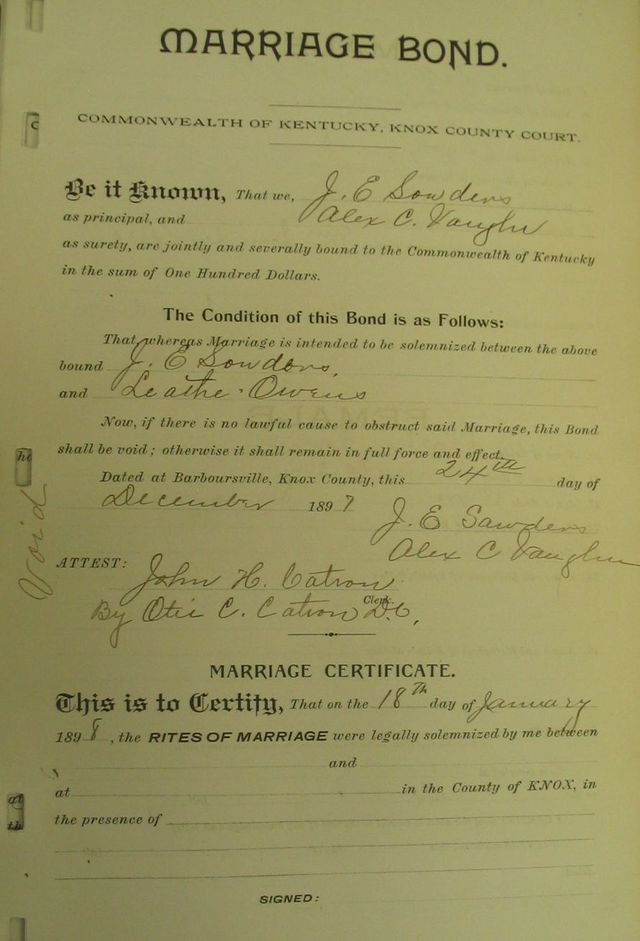 MARRIAGE BOND.
COMMONWEALTH OF KENTUCKY, KNOX COUNTY COURT.
Be it Known, That we, J. E Sowders
as principal, and Alex C. Vaughn
as surety, are jointly and severally bound to the Commonwealth of Kentucky
in the sum of One Hundred Dollars.
The Condition of this Bond is as Follows:
That whereas Marriage is intended to be solemnized between the above
bound J. E Sowders,
and Leathe Owens
Now, if there is no lawful cause to obstruct said Marriage, this Bond
shall be void; otherwise it shall remain in full force and effect.
Dated at Barboursville, Knox County, this 24th day of
December 1897
J. E Sowders
Alex C Vaughn
Void
ATTEST: John H. Catron
Clerk.
By Otis C. Catron D.C.
MARRIAGE CERTIFICATE.
This is to Certify, That on the 18Th day of January
1898, the RITES OF MARRIAGE were legally solemnized by me between
and
at in the County of KNOX, in
the presence of
SIGNED: